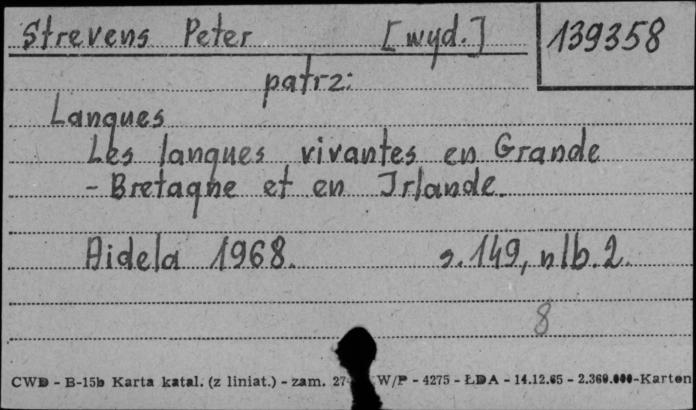 Strevens Peter [wyd.] 139358
patrz:
Langues
Les langues vivantes en Grande
- Bretagne et en Irlande.
Aidela 1968. s. 149, nlb. 2.
8
CWD - B-15b Karta katal. (z liniat.) - zam. 27 W/P - 4275 - ŁDA - 14.12.65 - 2.360.000-Karton